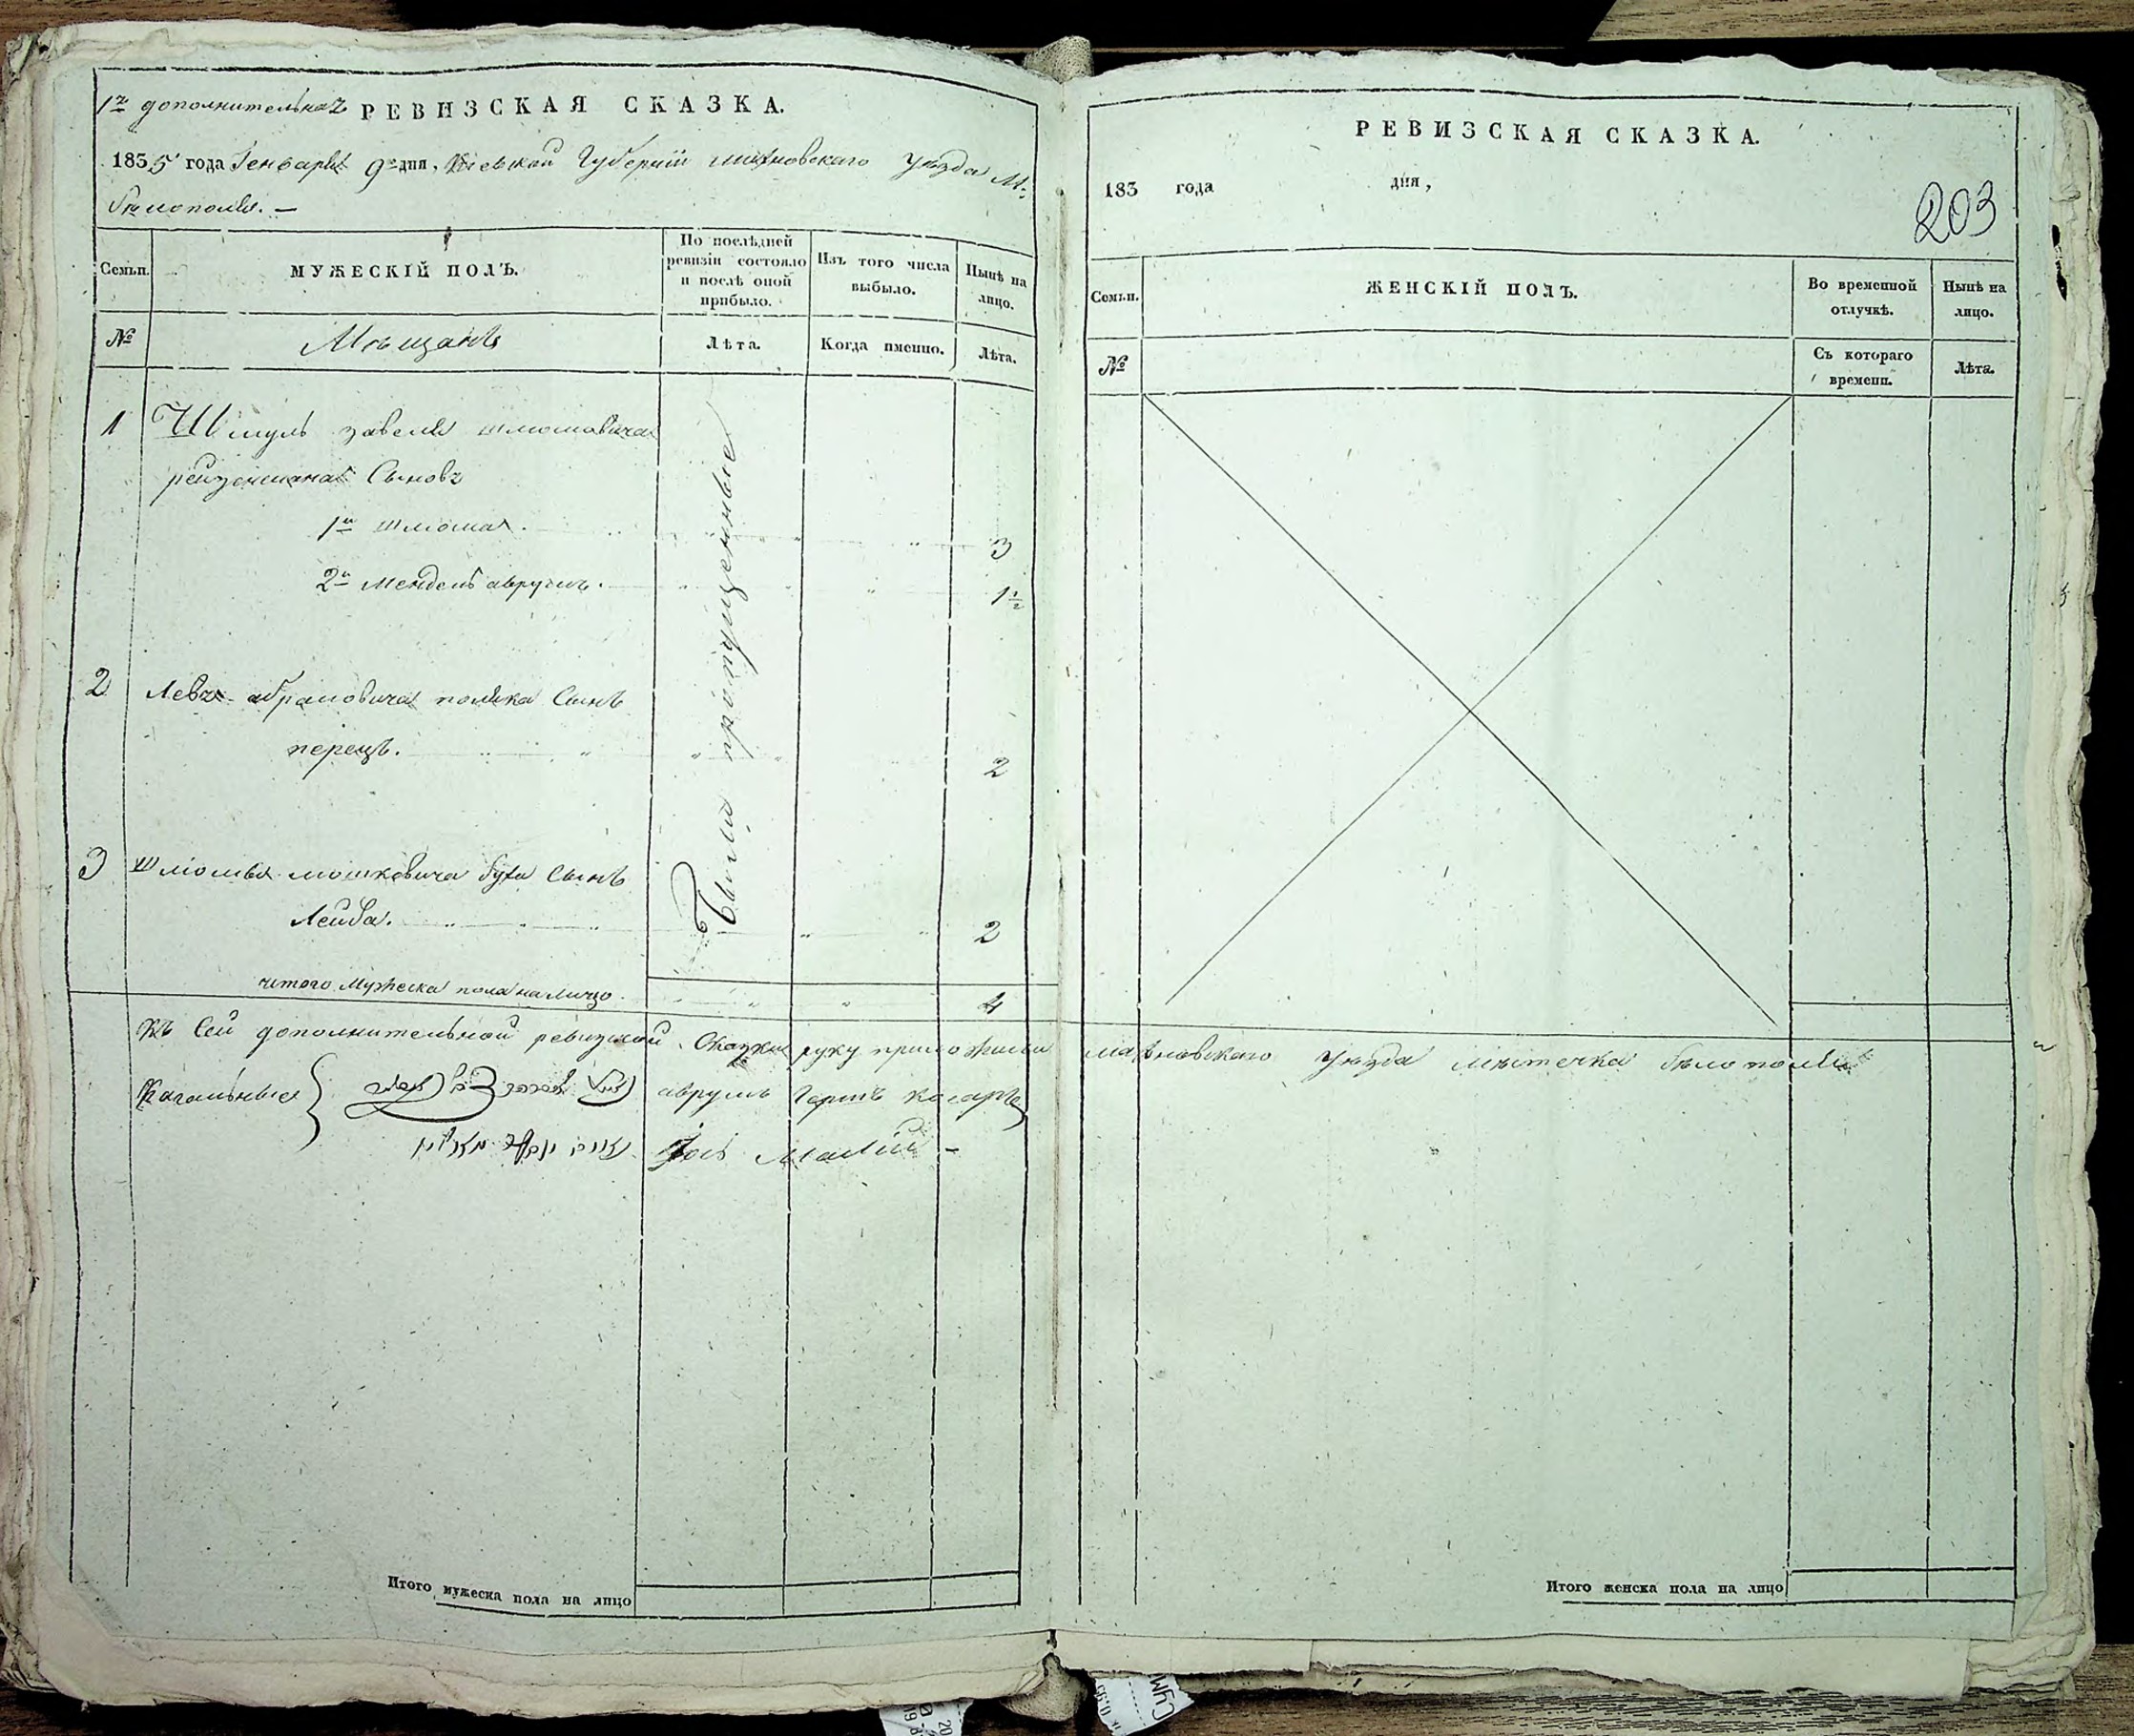 1я дополнительная РЕВИЗСКАЯ СКАЗКА.
1835 года Генваря 9го дня, Киевской Губернии махновскаго уезда М.
белополя. —
Семьи.
МУЖЕСКІЙ ПОЛЪ.
По послѣдней ревизіи состояло и послѣ оной прибыло.
Изъ того числа выбыло.
Нынѣ на лицо.
№
Мѣщанъ
Лѣта.
Когда именно.
Лѣта.
Были пропущенные
1 Шмуль завеля шлiомовича
Сыновъ
1й шлiома. 3
2й мендель аврумъ. 1½
2 Лева абрамовича поляка Сынъ
перецъ. 2
3 шлiомы мошковича буха Сынъ
Лейба. 2
итого Мужеска пола на лицо. 4
Къ Сей дополнительной ревизской Сказки руку приложили махновскаго уезда мѣстечка белополя
Кагальные
аврумъ Гершъ
Малий —
РЕВИЗСКАЯ СКАЗКА.
183 года дня,
203
Семьи.
ЖЕНСКІЙ ПОЛЪ.
Во временной отлучкѣ.
Нынѣ на лицо.
№
Съ котораго времени.
Лѣта.
Итого мужеска пола на лицо
Итого женска пола на лицо